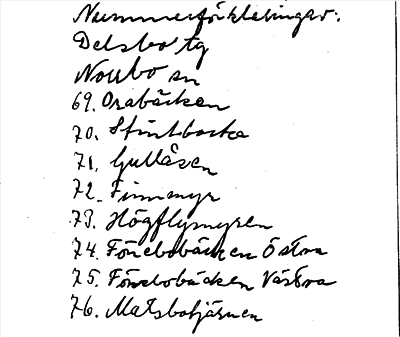 Nummerförklaringar:
Delsbo tg
Norrbo sn
69. Orabäcken
70. Stintbacka
71. Gullåsen
72. Finnmyr
73. Högflymyren
74. Förebobäcken Östra
75. Förebobäcken Västra
76. Matsbotjärnen